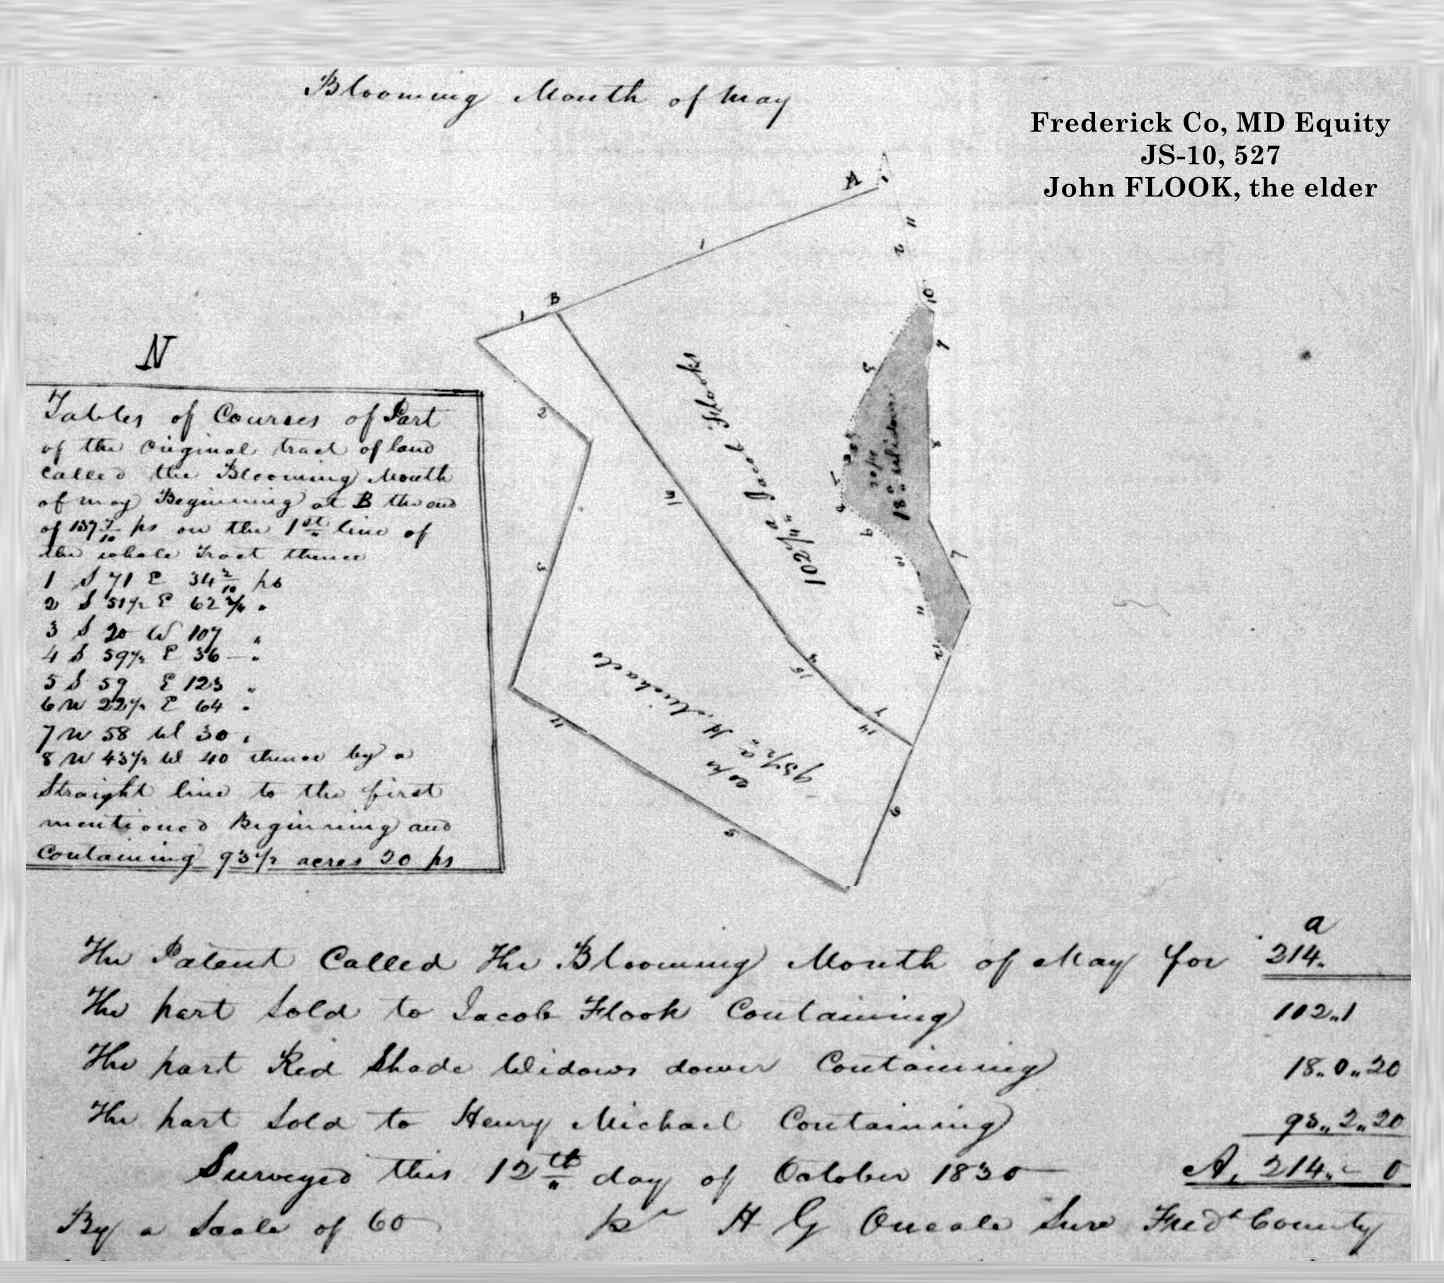 Blooming Month of May
Frederick Co, MD Equity
JS-10, 527
John FLOOK, the elder
A
1
11
2
10
B
1
9
3
8
2
102 1/4 a Jacob Flooks
18 a widows
20 ps
16
7
3
15
14
6
93 1/2 a H. Michaels
20 ps
5
N
Tables of Courses of Part
of the Original tract of land
Called the Blooming Month
of may Beginning at B the end
of 137 7/10 ps on the 1st line of
the whole Tract thence
1 S 71 E 34 2/10 ps
2 S 51 1/2 E 62 "
3 S 20 W 107 "
4 S 59 1/2 E 36 — "
5 S 59 E 123 "
6 N 22 1/2 E 64 "
7 N 58 W 30 "
8 N 43 1/2 W 40 thence by a
Straight line to the first
mentioned Beginning and
Containing 93 1/2 acres 20 ps
a
The Patent Called The Blooming Month of May for 214.
The part Sold to Jacob Flook Containing 102„1
The part Red Shade Widows dower Containing 18„0„20
The part Sold to Henry Michael Containing 93„2„20
Surveyed this 12th day of October 1830 A, 214„ - 0
By a Scale of 60 pr H G Oneale Surv Fredk County